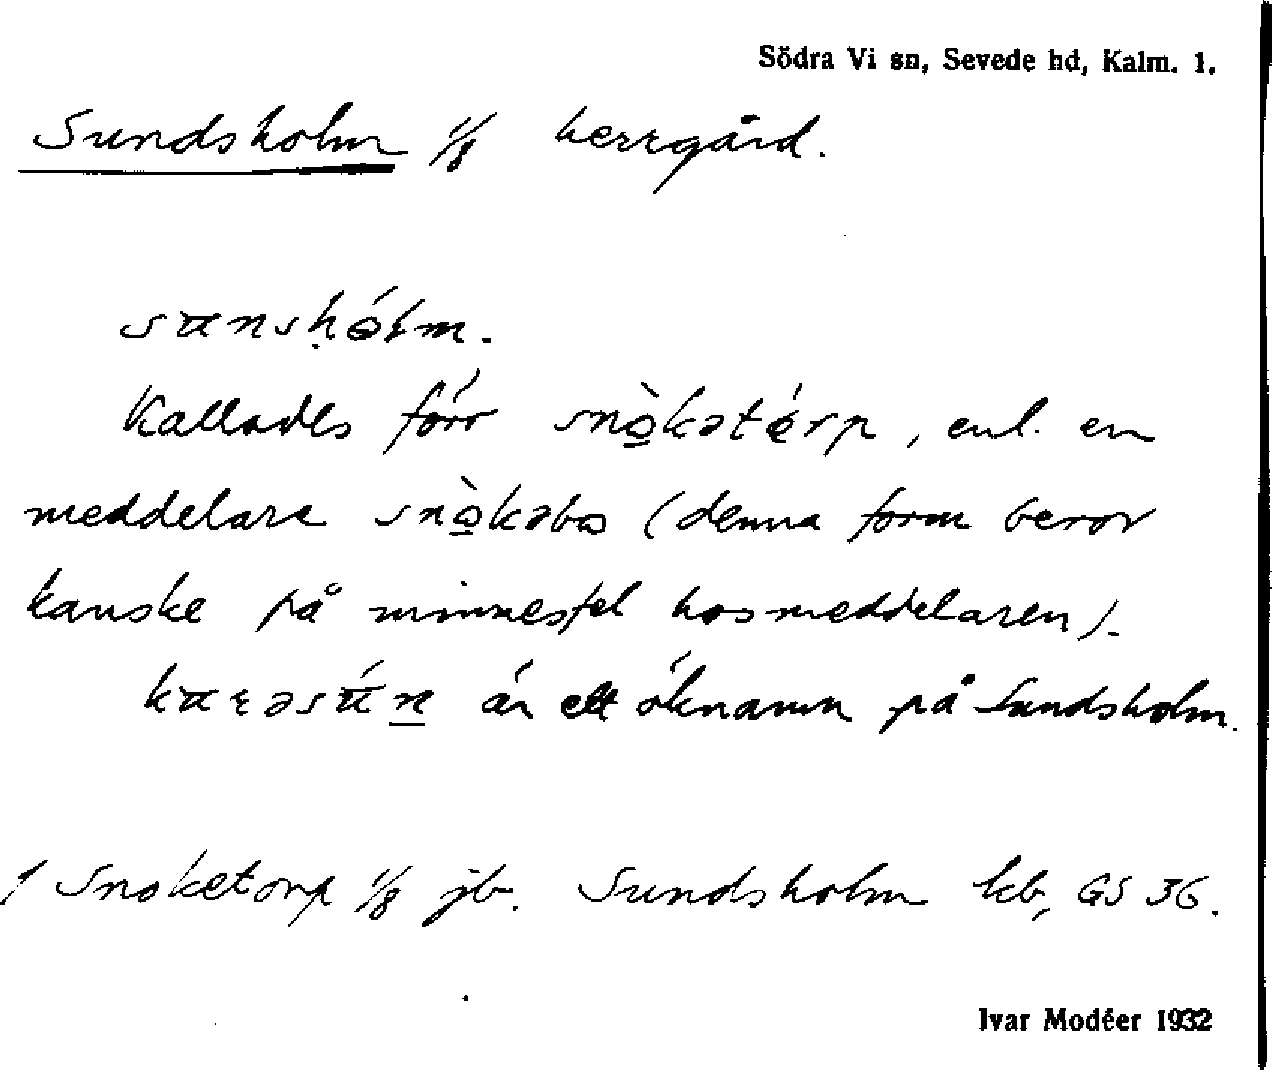 Södra Vi sn, Sevede hd, Kalm. l.
Sundsholm 1/8 herrgård.
sunshólm.
Kallades förr snò̱kətórp, enl. en
meddelare snò̱kəbo (denna form beror
kanske på minnesfel hos meddelaren).
är ett öknamn på Sundsholm.
/ Snoketorp 1/8 jb. Sundsholm kb, GS 36.
Ivar Modéer 1932